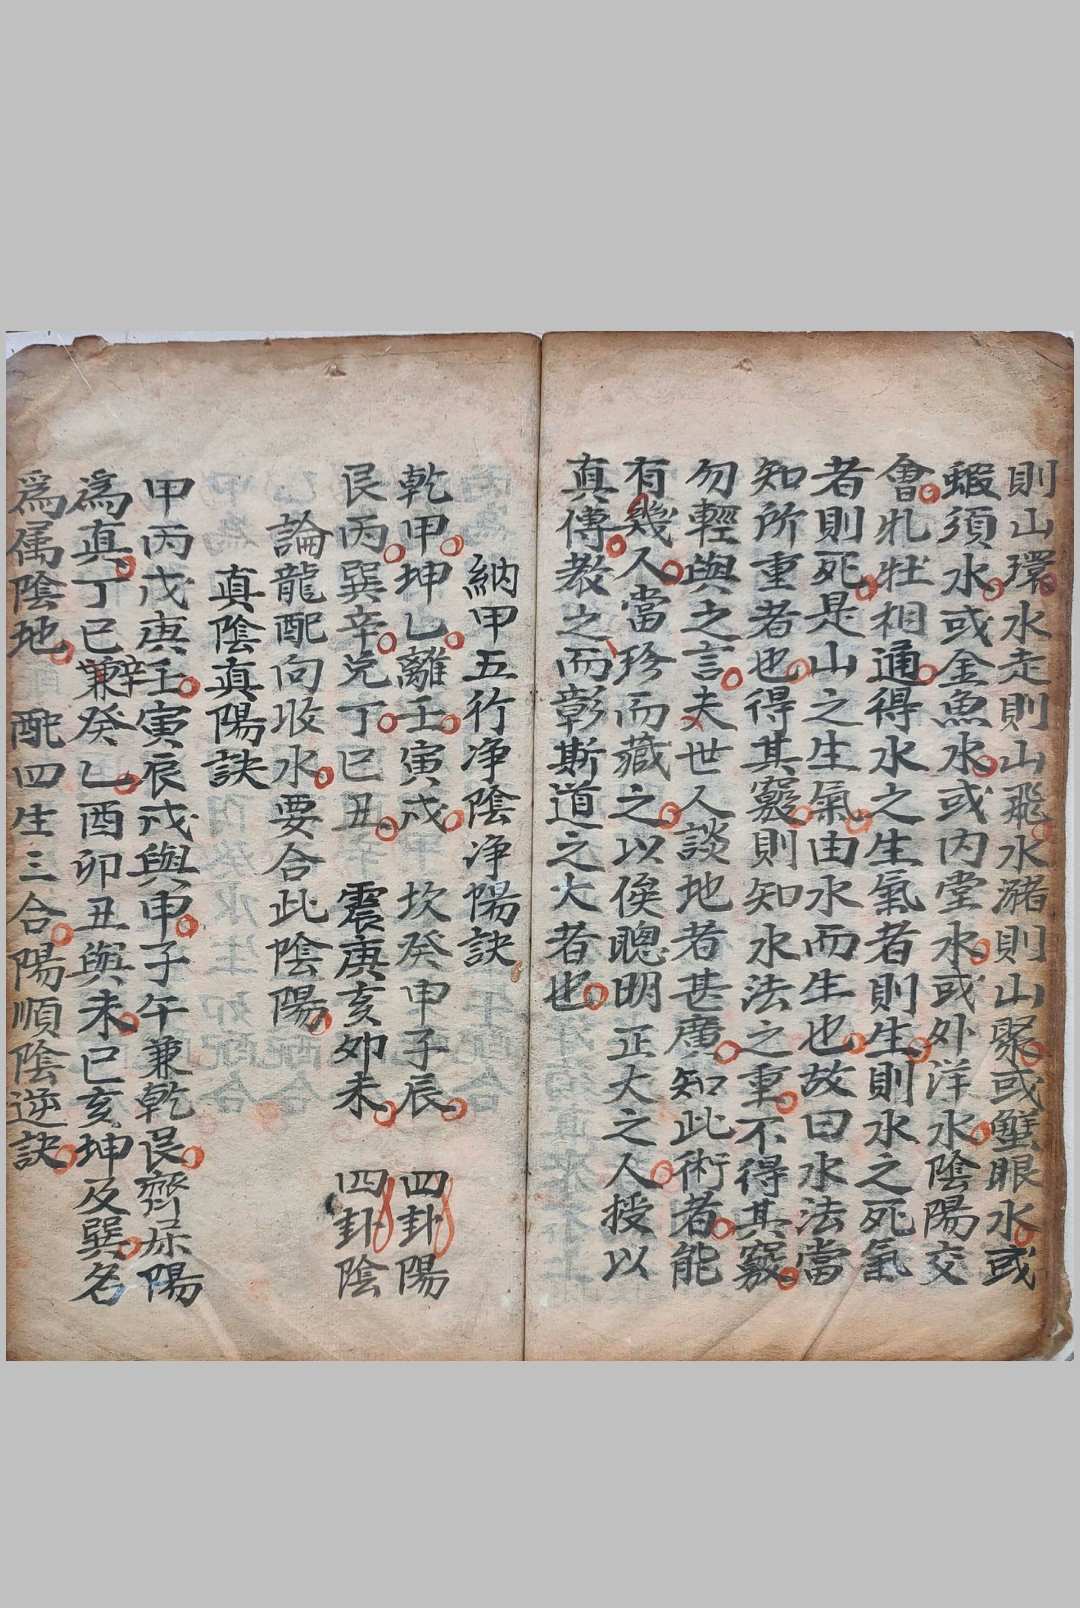 則山環水走則山飛水潴則山聚或蟹眼水或
蝦須水或金魚水或内堂水或外洋水陰陽交
會牝牡相通得水之生氣者則生則水之死氣
者則死是山之生氣由水而生也故曰水法當
知所重者也得其竅則知水法之重不得其竅
勿輕與之言夫世人談地者甚廣知此術者能
有幾人當珍而藏之以俟聰明正大之人授以
真傳教之而彰斯道之大者也
納甲五行净陰净陽訣
乾甲坤乙離壬寅戌 坎癸申子辰 四卦陽
艮丙巽辛兌丁巳丑 震庚亥卯未 四卦陰
論龍配向收水要合此陰陽
真陰真陽訣
甲丙戊庚壬寅辰戌與申子午兼乾艮齊屬陽
爲真丁己兼辛癸乙酉卯丑與未巳亥坤及巽名
爲属陰地 配四生三合陽順陰逆訣